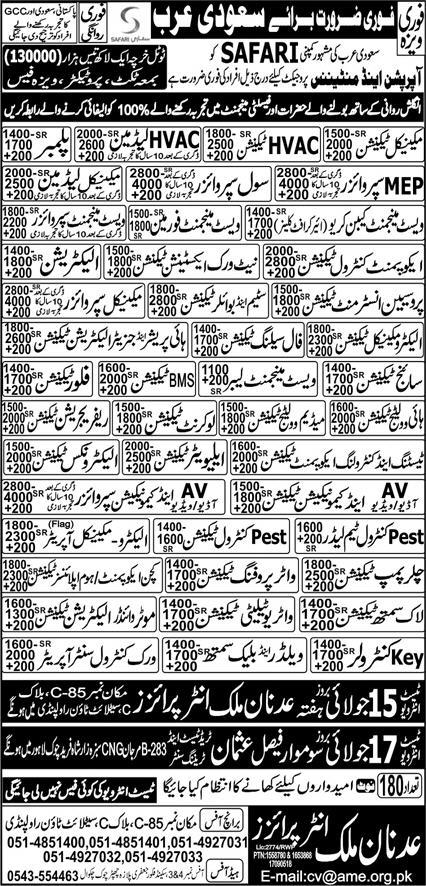 فوری ویزہ
فوری ضرورت برائے سعودی عرب
SAFARI
فوری روانگی
پاکستانی سعودی اور GCC
کا تجربہ رکھنے والے
افراد کو ترجیح دی جائے گی
سعودی عرب کی مشہور کمپنی SAFARI کو
آپریشن اینڈ مینٹیننس پروجیکٹ کیلئے درج ذیل افراد کی فوری ضرورت ہے
ٹوٹل خرچہ ایک لاکھ تیس ہزار (130000)
بمعہ ٹکٹ، پروٹیکٹر، ویزہ فیس
انگلش روانی کے ساتھ بولنے والے حضرات اور فیسلٹی مینجمنٹ میں تجربہ رکھنے والے 100% کوالیفائی کرنے والے رابطہ کریں
مکینیکل ٹیکنیشن 1500-2000 SR +200
HVAC ٹیکنیشن 1800-2500 SR +200
HVAC لیڈ مین 2000-2600 SR +200
پلمبر 1400-1700 SR +200
MEP سپروائزر 2800-4000 SR +200
سول سپروائزر 2800-4000 SR +200
مکینیکل لیڈ مین 2000-2500 SR
ویسٹ مینجمنٹ کلین کریو (ائیر کرافٹ کلینر) 1400-1700 SR +200
ویسٹ مینجمنٹ فورمین 1500-1800 SR
ویسٹ مینجمنٹ سپروائزر 1800-2200 SR +200
ایکوپمنٹ کنٹرول ٹیکنیشن 2000-2800 SR +200
نیٹ ورک ایکسٹینشن ٹیکنیشن 1500-1800 SR +200
الیکٹریشن 1400-1800 SR +200
پروسیس انسٹرومنٹ ٹیکنیشن 1500-1800 SR +200
سٹیم اینڈ بوائلر ٹیکنیشن 1800-2800 SR +200
مکینیکل سپروائزر 2800-4000 SR +200
الیکٹرو مکینیکل ٹیکنیشن 1800-2300 SR +200
فال سیلنگ ٹیکنیشن 1400-1700 SR +200
ہائی پریشر اینڈ جنریٹر الیکٹریشن ٹیکنیشن 1800-2600 SR +200
ٹیکنیشن 1400-1700 SR +200
ویسٹ مینجمنٹ لیبر 1100 SR +200
BMS ٹیکنیشن 1600-2000 SR +200
فلور ٹیکنیشن 1400-1700 SR +200
ہائی وولٹیج ٹیکنیشن 1600-2000 SR +200
میڈیم وولٹیج ٹیکنیشن 1500-1800 SR +200
لو کرنٹ ٹیکنیشن 1500-1800 SR +200
ریفریجریشن ٹیکنیشن 1500-2000 SR +200
ٹیسٹنگ اینڈ کنٹرولنگ ایکوپمنٹ ٹیکنیشن 1600-2000 SR +200
ایلیویٹر ٹیکنیشن 2000-2500 SR +200
الیکٹرونکس ٹیکنیشن 1500-2000 SR +200
AV آڈیو/ویڈیو اینڈ کمیونیکیشن ٹیکنیشن 2000-2800 SR +200
AV آڈیو/ویڈیو اینڈ کمیونیکیشن سپروائزر 2800-4000 SR +200
Pest کنٹرول ٹیم لیڈر 1600 SR +200
Pest کنٹرول ٹیکنیشن 1400-1600 SR
الیکٹرو-مکینیکل آپریٹر (Flag) 1800-2300 SR +200
چلر پمپ ٹیکنیشن 1800-2500 SR +200
واٹر پروفنگ ٹیکنیشن 1400-1700 SR +200
کچن ایکوپمنٹ/ہوم اپلائنسز ٹیکنیشن 1800-2300 SR +200
لاک سمتھ ٹیکنیشن 1400-1700 SR +200
واٹر یوٹیلیٹی ٹیکنیشن 1400-1700 SR +200
موٹر وائنڈر الیکٹریشن ٹیکنیشن 1300-1600 SR +200
Key کنٹرولر 1400-1700 SR +200
ویلڈر اینڈ بلیک سمتھ 1400-1700 SR +200
ورک کنٹرول سنٹر آپریٹر 1600-2000 SR +200
ٹیسٹ انٹرویو 15 جولائی بروز ہفتہ عدنان ملک انٹرپرائزز مکان نمبر C-85، بلاک C، سیٹلائٹ ٹاؤن راولپنڈی میں ہونگے
ٹیسٹ انٹرویو 17 جولائی بروز سوموار فیصل عثمان ٹریڈ ٹیسٹ اینڈ ٹریننگ سنٹر B-283 مرجان CNG سبزہ زار شاہ فرید چوک لاہور میں ہونگے
تعداد 180 نوٹ امیدواروں کیلئے کھانے کا انتظام کیا جائیگا
ٹیسٹ انٹرویو کی کوئی فیس نہیں لی جائیگی
عدنان ملک انٹرپرائزز
Lic:2774/RWP
PTN:1558780 & 1653868
17090518
E-mail:cv@ame.org.pk
برانچ آفس مکان نمبر C-85، بلاک C، سیٹلائٹ ٹاؤن راولپنڈی
051-4851400, 051-4851401, 051-4927031
051-4927032, 051-4927033
ہیڈ آفس آفس نمبر 3&4، سیکنڈ فلور جعفری پلازہ چکوال
0543-554463